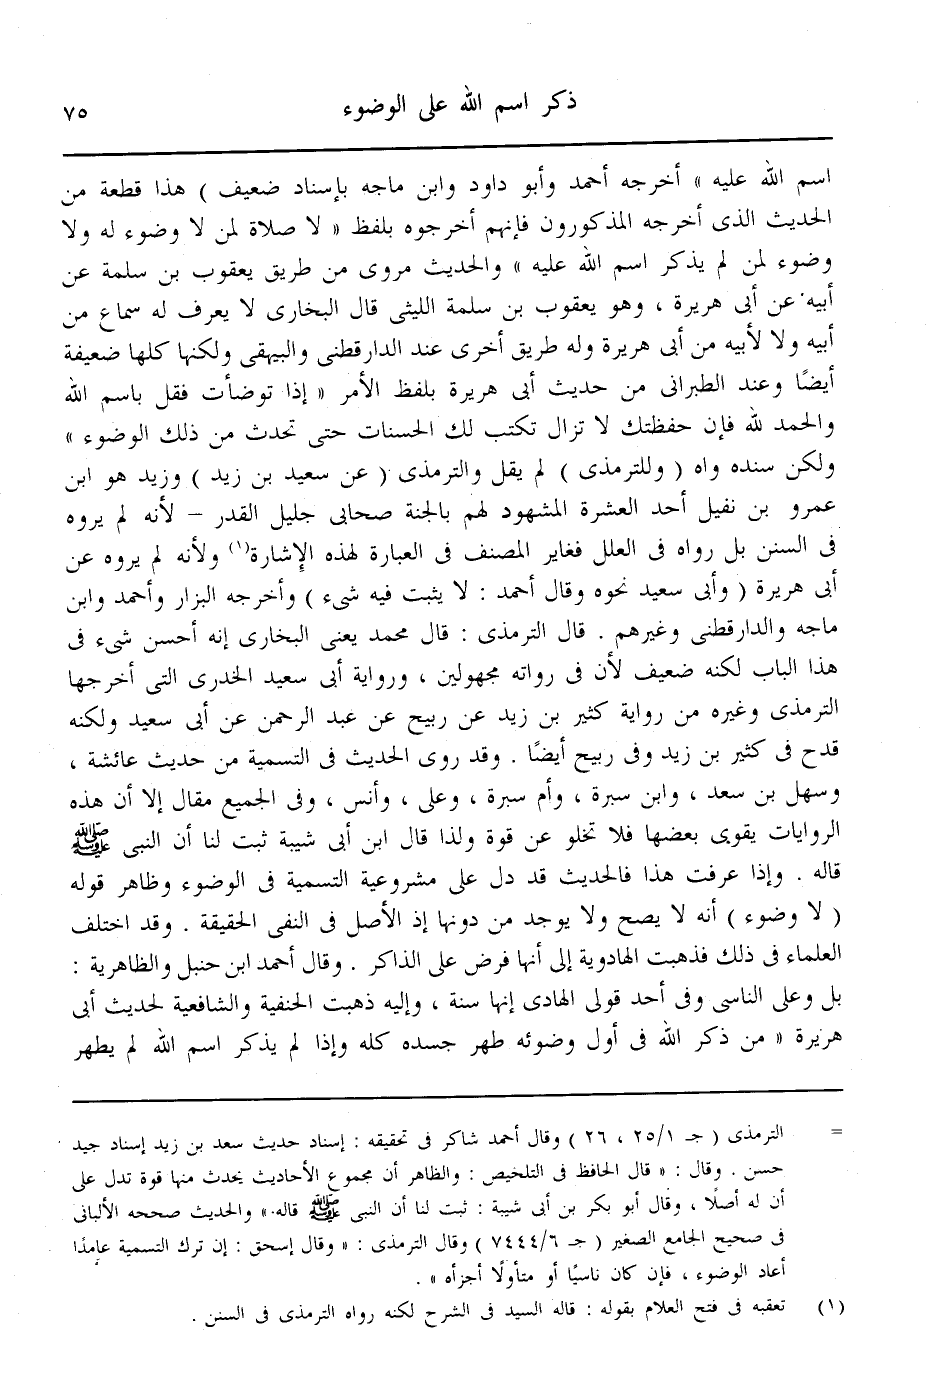 ذكر اسم الله على الوضوء
٧٥
اسم الله عليه » أخرجه أحمد وأبو داود وابن ماجه بإسناد ضعيف ) هذا قطعة من
الحديث الذى أخرجه المذكورون فإنهم أخرجوه بلفظ « لا صلاة لمن لا وضوء له ولا
وضوء لمن لم يذكر اسم الله عليه » والحديث مروى من طريق يعقوب بن سلمة عن
أبيه عن أبى هريرة ، وهو يعقوب بن سلمة الليثى قال البخارى لا يعرف له سماع من
أبيه ولا لأبيه من أبى هريرة وله طريق أخرى عند الدارقطنى والبيهقى ولكنها كلها ضعيفة
أيضًا وعند الطبرانى من حديث أبى هريرة بلفظ الأمر « إذا توضأت فقل باسم الله
والحمد لله فإن حفظتك لا تزال تكتب لك الحسنات حتى تحدث من ذلك الوضوء »
ولكن سنده واه ( وللترمذى ) لم يقل والترمذى ( عن سعيد بن زيد ) وزيد هو ابن
عمرو بن نفيل أحد العشرة المشهود لهم بالجنة صحابى جليل القدر – لأنه لم يروه
فى السنن بل رواه فى العلل فغاير المصنف فى العبارة لهذه الإشارة(١) ولأنه لم يروه عن
أبى هريرة ( وأبى سعيد نحوه وقال أحمد : لا يثبت فيه شىء ) وأخرجه البزار وأحمد وابن
ماجه والدارقطنى وغيرهم . قال الترمذى : قال محمد يعنى البخارى إنه أحسن شىء فى
هذا الباب لكنه ضعيف لأن فى رواته مجهولين ، ورواية أبى سعيد الخدرى التى أخرجها
الترمذى وغيره من رواية كثير بن زيد عن ربيح عن عبد الرحمن عن أبى سعيد ولكنه
قدح فى كثير بن زيد وفى ربيح أيضًا . وقد روى الحديث فى التسمية من حديث عائشة ،
وسهل بن سعد ، وابن سبرة ، وأم سبرة ، وعلى ، وأنس ، وفى الجميع مقال إلا أن هذه
الروايات يقوى بعضها فلا تخلو عن قوة ولذا قال ابن أبى شيبة ثبت لنا أن النبى ﷺ
قاله . وإذا عرفت هذا فالحديث قد دل على مشروعية التسمية فى الوضوء وظاهر قوله
( لا وضوء ) أنه لا يصح ولا يوجد من دونها إذ الأصل فى النفى الحقيقة . وقد اختلف
العلماء فى ذلك فذهبت الهادوية إلى أنها فرض على الذاكر . وقال أحمد ابن حنبل والظاهرية :
بل وعلى الناسى وفى أحد قولى الهادى إنها سنة ، وإليه ذهبت الحنفية والشافعية لحديث أبى
هريرة « من ذكر الله فى أول وضوئه طهر جسده كله وإذا لم يذكر اسم الله لم يطهر
= الترمذى ( جـ ٢٥/١ ، ٢٦ ) وقال أحمد شاكر فى تحقيقه : إسناد حديث سعد بن زيد إسناد جيد
حسن . وقال : « قال الحافظ فى التلخيص : والظاهر أن مجموع الأحاديث يحدث منها قوة تدل على
أن له أصلًا ، وقال أبو بكر بن أبى شيبة : ثبت لنا أن النبى ﷺ قاله » والحديث صححه الألبانى
فى صحيح الجامع الصغير ( جـ ٧٤٤٤/٦ ) وقال الترمذى : « وقال إسحق : إن ترك التسمية عامدًا
أعاد الوضوء ، فإن كان ناسيًا أو متأولًا أجزأه » .
(١) تعقبه فى فتح العلام بقوله : قاله السيد فى الشرح لكنه رواه الترمذى فى السنن .